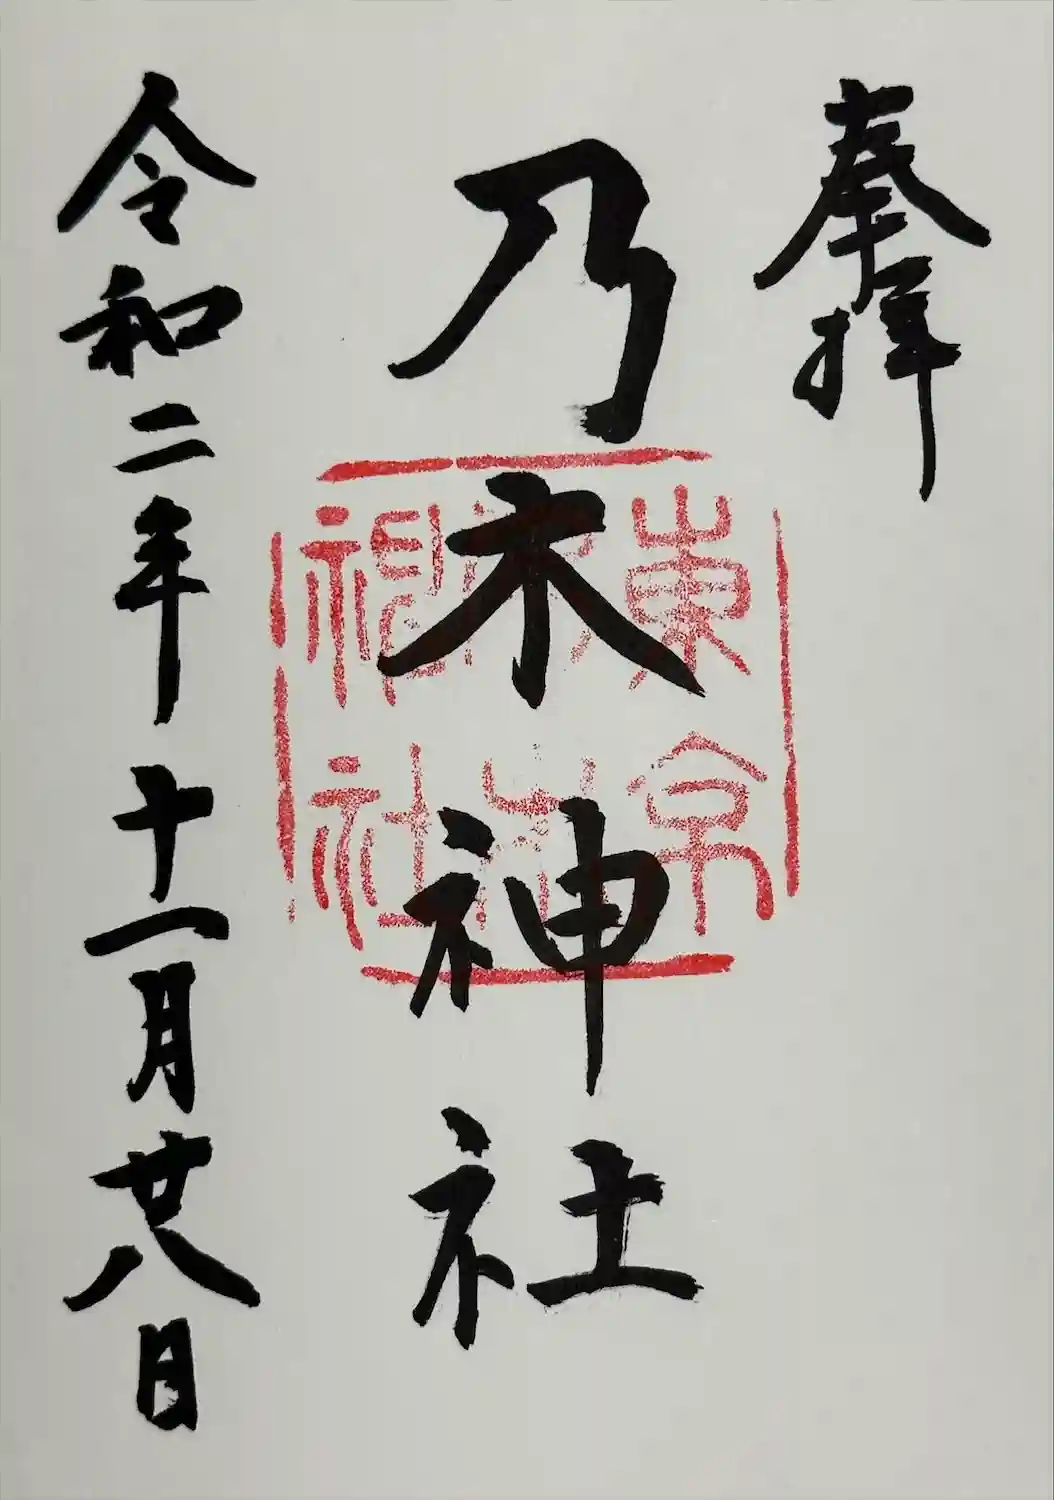 奉拝
乃木神社
令和二年十一月廿八日
東京
神社